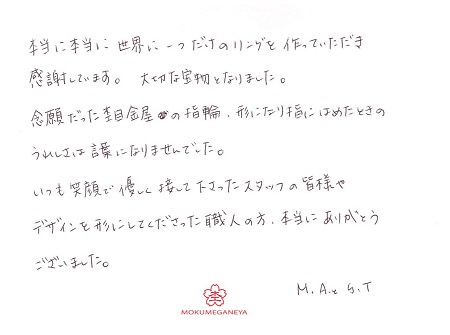 本当に本当に世界に一つだけのリングを作っていただき
感謝しています。大切な宝物となりました。
念願だった杢目金屋の指輪、形になり指にはめたときの
うれしさは言葉になりませんでした。
いつも笑顔で優しく接して下さったスタッフの皆様や
デザインを形にしてくださった職人の方、本当にありがとう
ございました。
M.A.と G.T
MOKUMEGANEYA